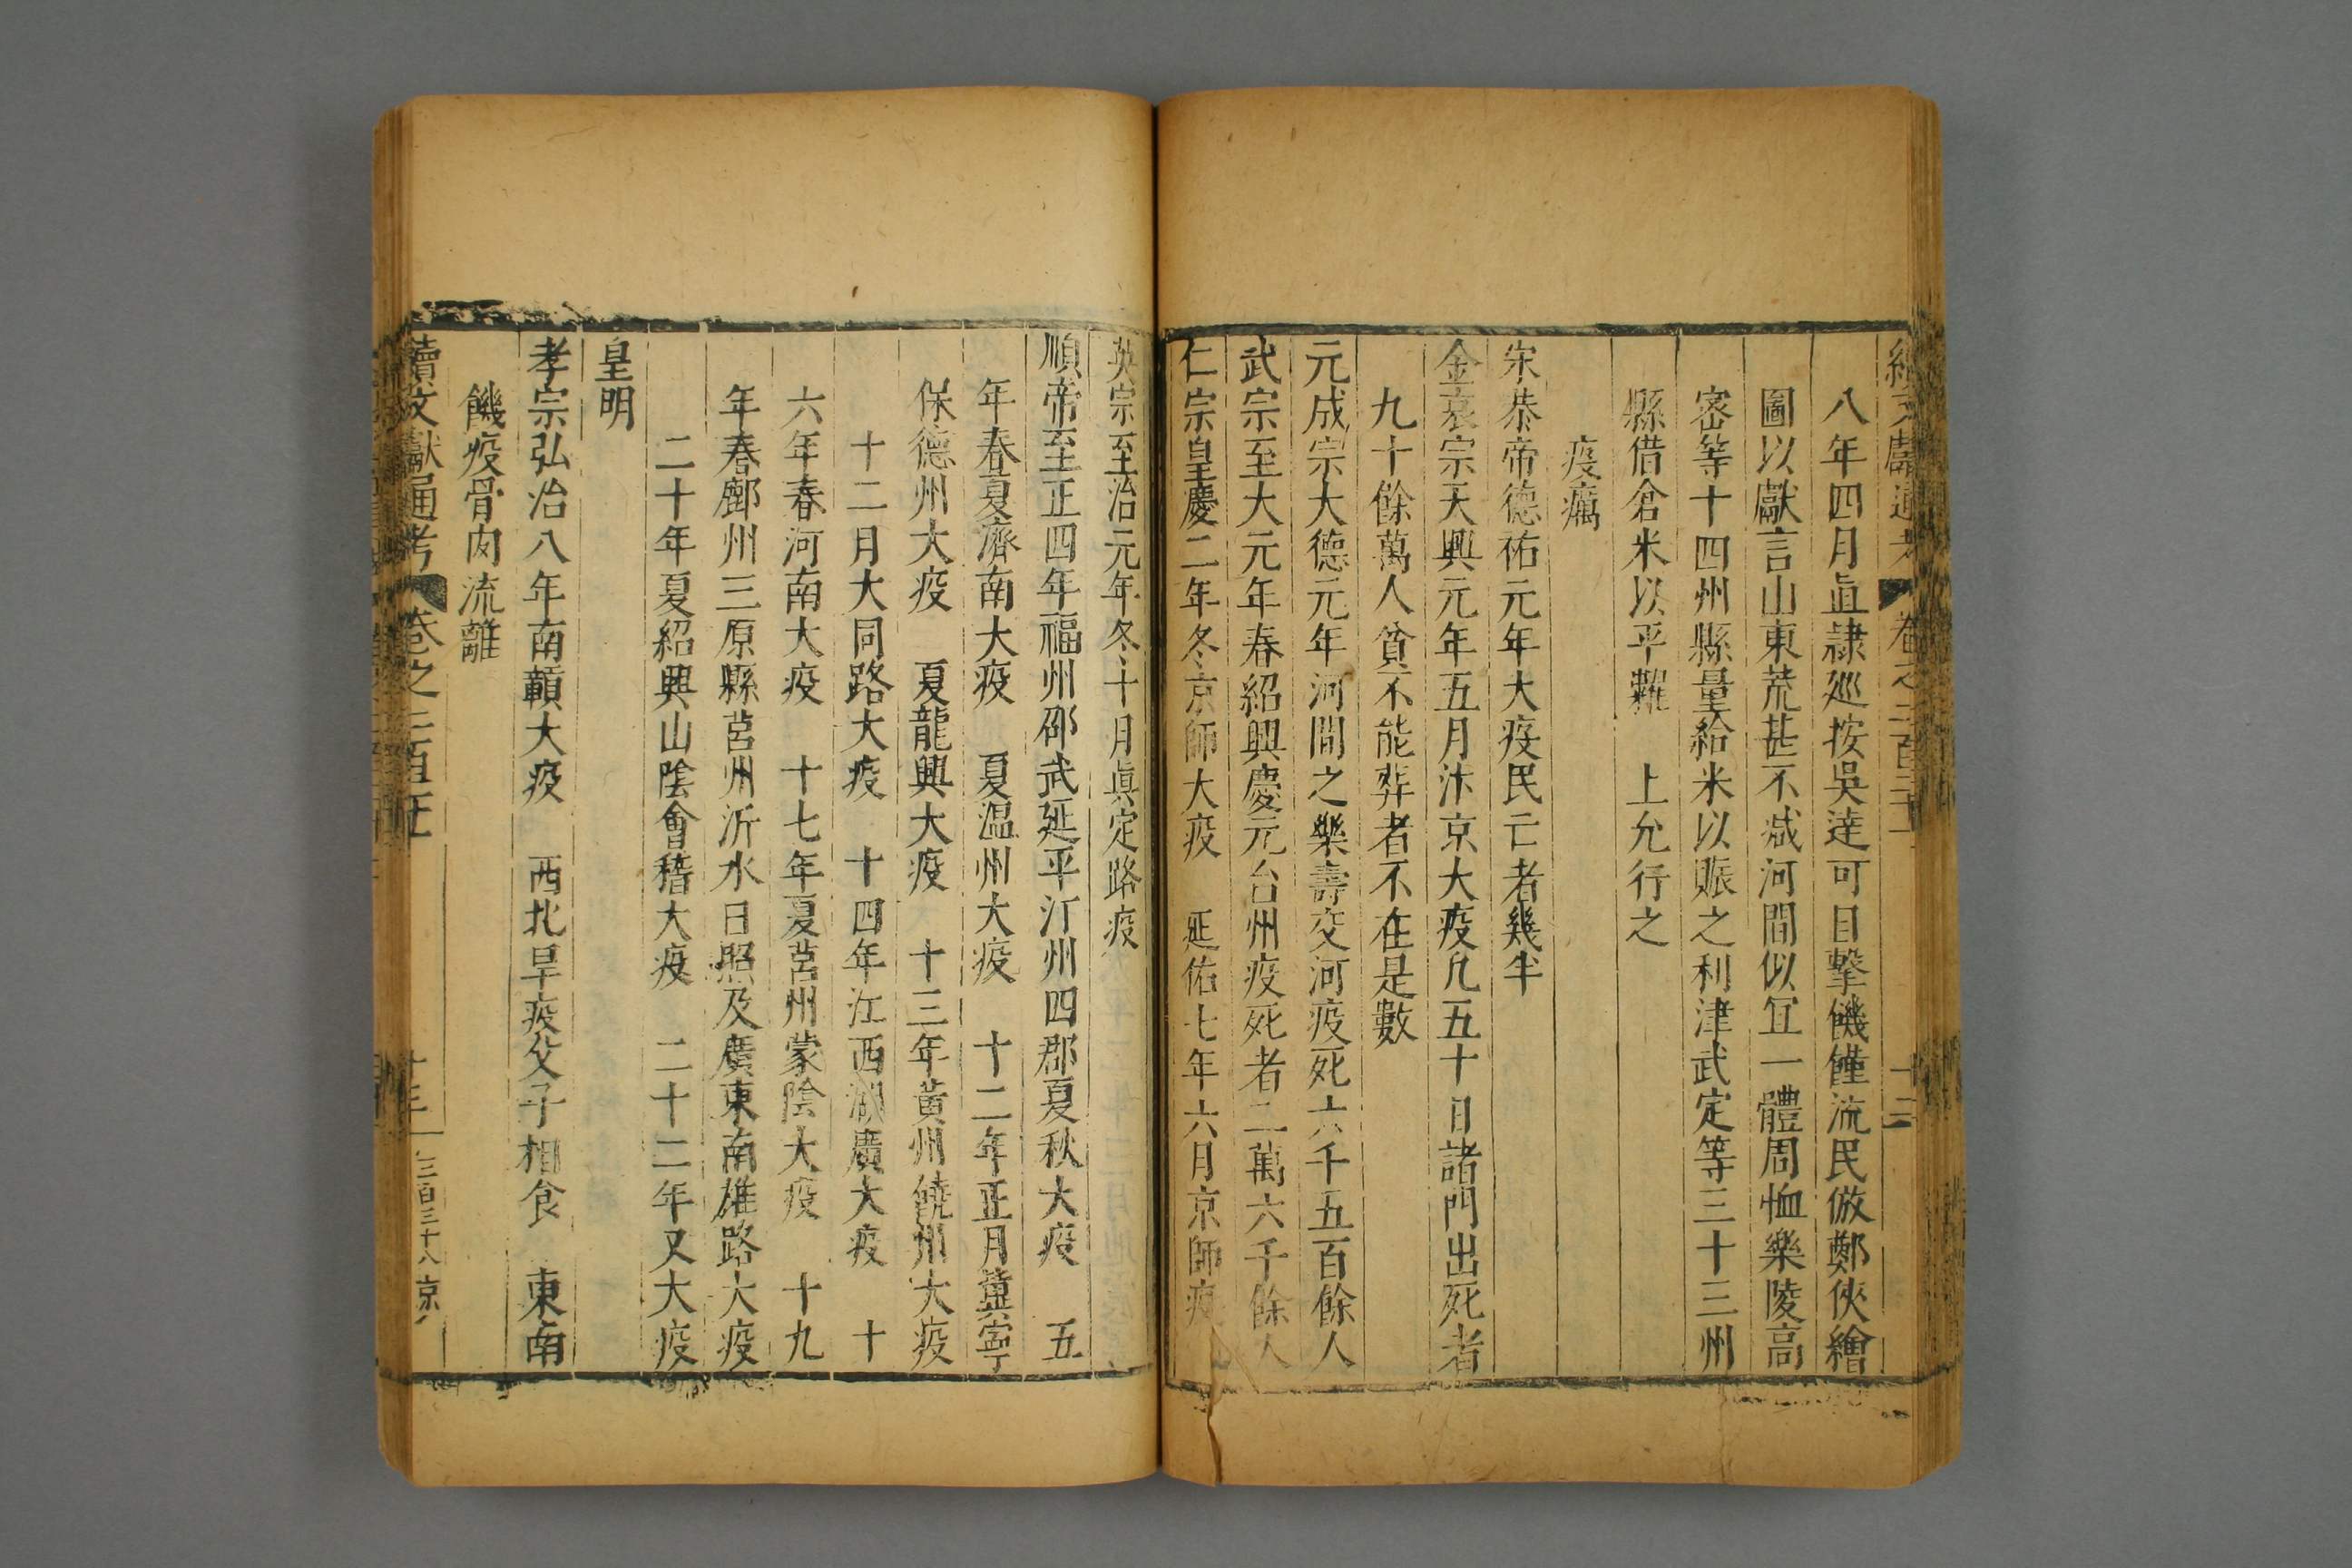 續文獻通考 卷之二百二十一 十二
八年四月直隷廵按吳達可目擊饑饉流民倣鄭俠繪
圖以獻言山東荒甚不减河間似宜一體周恤樂陵高
密等十四州縣量給米以賑之利津武定等三十三州
縣借倉米以平糶 上允行之
疫癘
宋恭帝德祐元年大疫民亡者幾半
金哀宗天興元年五月汴京大疫凡五十日諸門出死者
九十餘萬人貧不能葬者不在是數
元成宗大德元年河間之樂壽交河疫死六千五百餘人
武宗至大元年春紹興慶元台州疫死者二萬六千餘人
仁宗皇慶二年冬京師大疫 延佑七年六月京師疫
英宗至治元年冬十月眞定路疫
順帝至正四年福州邵武延平汀州四郡夏秋大疫 五
年春夏濟南大疫 夏温州大疫 十二年正月冀寧
保德州大疫 夏龍興大疫 十三年黃州饒州大疫
十二月大同路大疫 十四年江西湖廣大疫 十
六年春河南大疫 十七年夏莒州蒙陰大疫 十九
年春鄜州三原縣莒州沂水日照及廣東南雄路大疫
二十年夏紹興山陰會稽大疫 二十二年又大疫
皇明
孝宗弘治八年南贑大疫 西北旱疫父子相食 東南
饑疫骨肉流離
續文獻通考 卷之二百二十一 十三 三百三十八 京